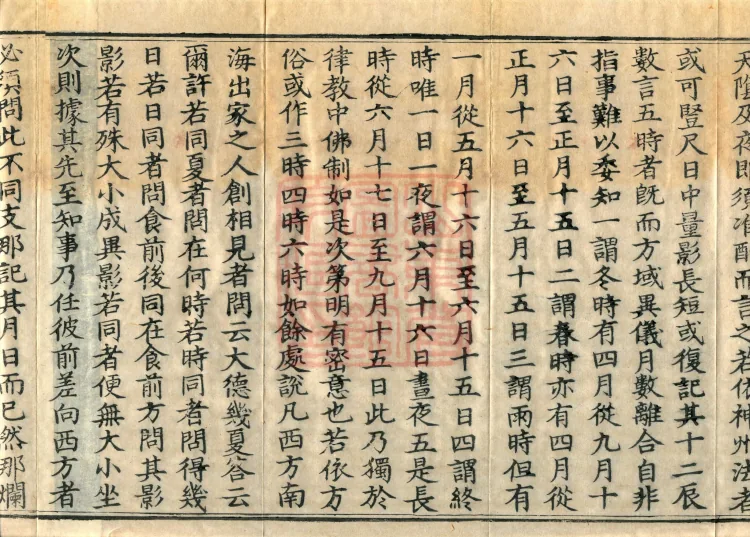 天陰及夜即須准酌而言之若依神州法者
或可豎尺日中量影長短或復記其十二辰
數言五時者既而方域異儀月數離合自非
指事難以委知一謂冬時有四月從九月十
六日至正月十五日二謂春時亦有四月從
正月十六日至五月十五日三謂雨時但有
一月從五月十六日至六月十五日四謂終
時唯一日一夜謂六月十六日晝夜五是長
時從六月十七日至九月十五日此乃獨於
律教中佛制如是次第明有密意也若依方
俗或作三時四時六時如餘處說凡西方南
海出家之人創相見者問云大德幾夏答云
爾許若同夏者問在何時若時同者問得幾
日若日同者問食前後同在食前方問其影
影若有殊大小成異影若同者便無大小坐
次則據其先至知事乃任彼前差向西方者
必須問此不同支那記其月日而已然那爛